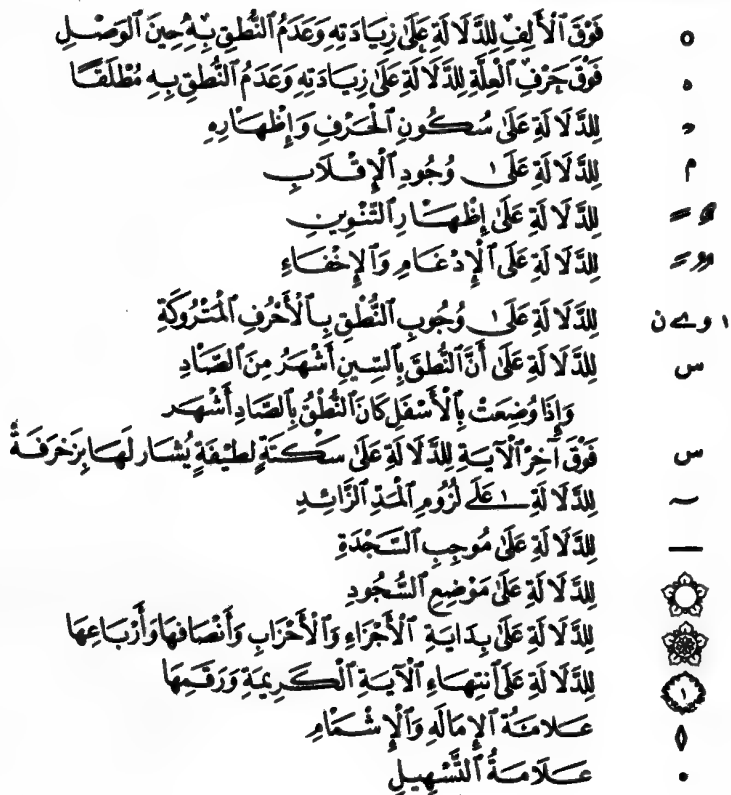 ه فَوْقَ ٱلْأَلِفِ لِلدَّلَالَةِ عَلَىٰ زِيَادَتِهِ وَعَدَمُ ٱلنُّطْقِ بِهِ حِينَ ٱلْوَصْلِ
ه فَوْقَ حَرْفِ ٱلْعِلَّةِ لِلدَّلَالَةِ عَلَىٰ زِيَادَتِهِ وَعَدَمُ ٱلنُّطْقِ بِهِ مُطْلَقًا
لِلدَّلَالَةِ عَلَىٰ سُكُونِ ٱلْحَرْفِ وَإِظْهَارِهِ
م لِلدَّلَالَةِ عَلَىٰ وُجُودِ ٱلْإِقْلَابِ
لِلدَّلَالَةِ عَلَىٰ إِظْهَارِ ٱلتَّنْوِينِ
لِلدَّلَالَةِ عَلَى ٱلْإِدْغَامِ وَٱلْإِخْفَاءِ
ا و ے ن لِلدَّلَالَةِ عَلَىٰ وُجُوبِ ٱلنُّطْقِ بِٱلْأَحْرُفِ ٱلْمَتْرُوكَةِ
س لِلدَّلَالَةِ عَلَىٰ أَنَّ ٱلنُّطْقَ بِٱلسِّينِ أَشْهَرُ مِنَ ٱلصَّادِ
وَإِذَا وُضِعَتْ بِٱلْأَسْفَلِ كَانَ ٱلنُّطْقُ بِٱلصَّادِ أَشْهَر
س فَوْقَ آخِرْ ٱلْآيَةِ لِلدَّلَالَةِ عَلَىٰ سَكْتَةٍ لَطِيفَةٍ يُشَار لَهَا بِزَخْرَفَةٌ
~ لِلدَّلَالَةِ عَلَىٰ لُزُومِ ٱلْمَدِّ ٱلزَّائِدِ
— لِلدَّلَالَةِ عَلَىٰ مُوجِبِ ٱلسَّجْدَةِ
لِلدَّلَالَةِ عَلَىٰ مَوْضِعِ ٱلسُّجُودِ
لِلدَّلَالَةِ عَلَىٰ بِدَايَةِ ٱلْأَجْزَاءِ وَٱلْأَحْزَابِ وَأَنْصَافِهَا وَأَرْبَاعِهَا
١ لِلدَّلَالَةِ عَلَىٰ ٱنتِهَاءِ ٱلْآيَةِ ٱلْكَرِيمَةِ وَرَقَمِهَا
◊ عَلَامَةُ ٱلْإِمَالَةِ وَٱلْإِشْمَامِ
• عَلَامَةُ ٱلتَّسْهِيلِ